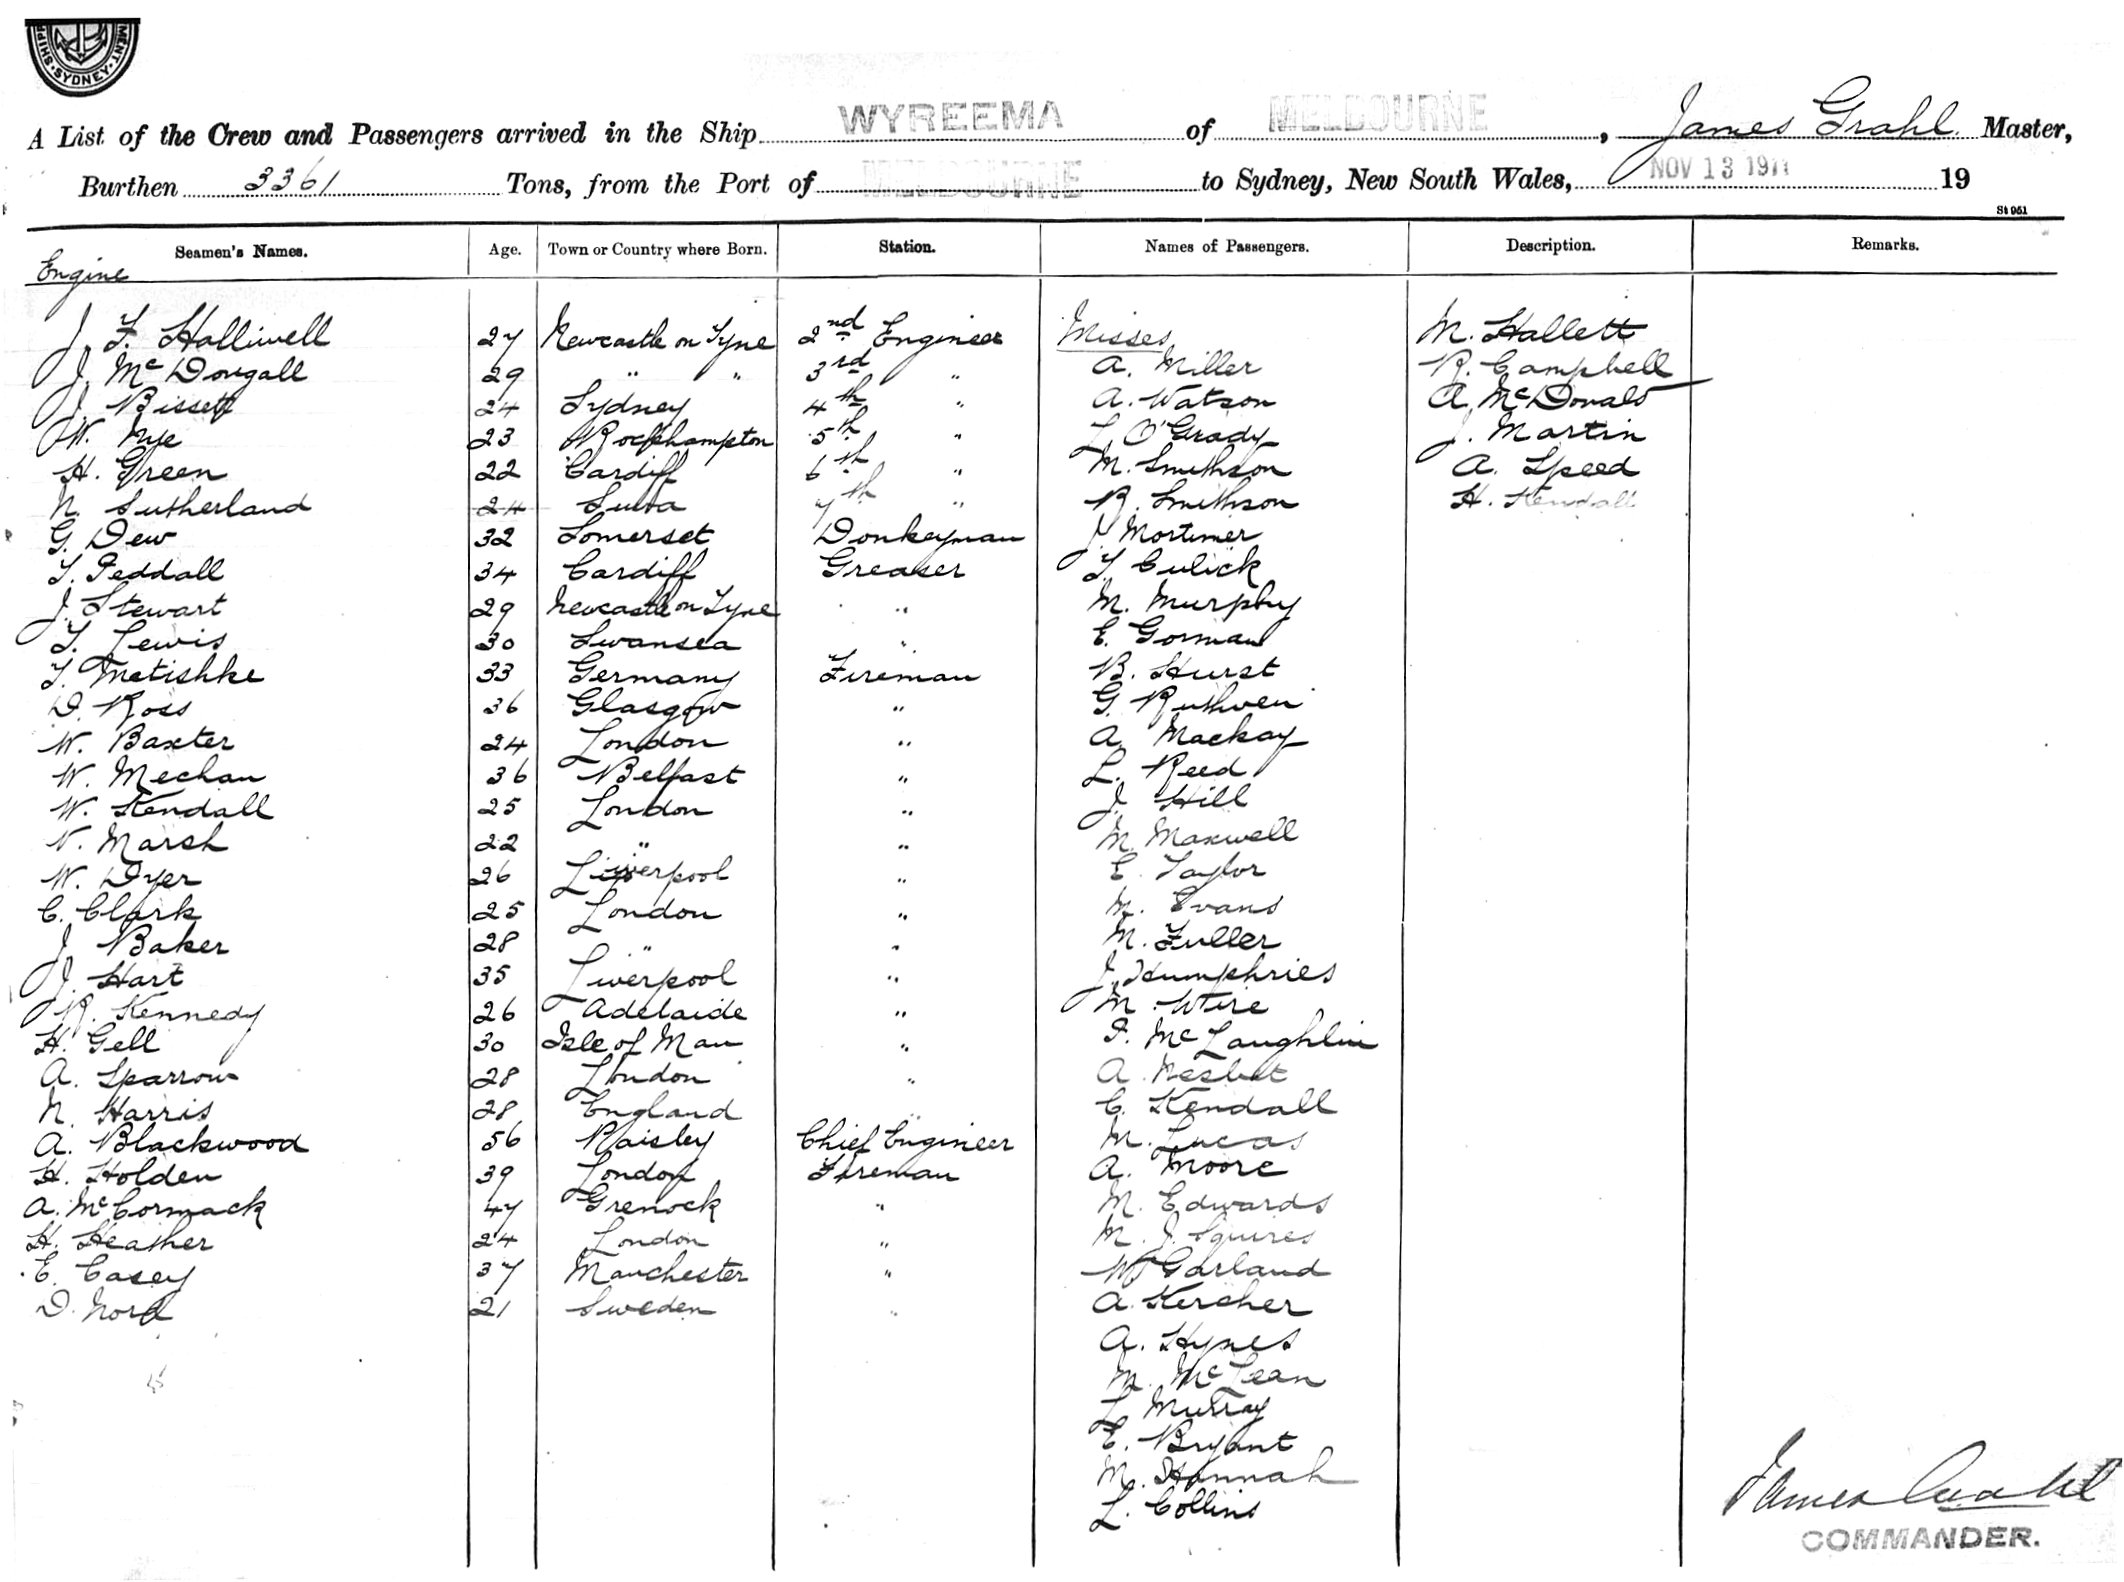 MENT · SHIPP
· SYDNEY ·
A List of the Crew and Passengers arrived in the Ship WYREEMA of MELBOURNE, James Grahl Master,
Burthen 3361 Tons, from the Port of MELBOURNE to Sydney, New South Wales, NOV 13 1911 19
St 951
Seamen's Names. Age. Town or Country where Born. Station. Names of Passengers. Description. Remarks.
Engine
J. F. Halliwell 27 Newcastle on Tyne 2nd Engineer Misses M. Hallett
J. McDougall 29 " " 3rd " A. Miller R. Campbell
J. Bissett 24 Sydney 4th " A. Watson A. McDonald
W. Nye 23 Rockhampton 5th " L. O'Grady J. Martin
H. Green 22 Cardiff 6th " M. Smithson A. Speed
N. Sutherland 24 Suva 7th " R. Smithson H. Kendall
G. Dew 32 Somerset Donkeyman J. Mortimer
T. Peddall 34 Cardiff Greaser T. Culick
J. Stewart 29 Newcastle on Tyne " M. Murphy
T. Lewis 30 Swansea " E. Gorman
T. Matishke 33 Germany Fireman B. Hurst
D. Ross 36 Glasgow " G. Ruthven
W. Baxter 24 London " A. Mackay
W. Mechan 36 Belfast " L. Reed
W. Kendall 25 London " J. Hill
N. Marsh 22 " " M. Maxwell
W. Dyer 26 Liverpool " E. Taylor
C. Clark 25 London " M. Evans
J. Baker 28 " " M. Fuller
J. Hart 35 Liverpool " J. Humphries
R. Kennedy 26 Adelaide " M. Wire
H. Gell 30 Isle of Man " F. McLaughlin
A. Sparrow 28 London " A. Nesbit
N. Harris 28 England " C. Kendall
A. Blackwood 56 Paisley Chief Engineer M. Lucas
H. Holden 39 London Fireman A. Moore
A. McCormack 47 Grenock " M. Edwards
H. Heather 24 London " M. J. Squires
E. Casey 37 Manchester " W. Garland
D. Nord 21 Sweden " A. Kercher
A. Hynes
M. McLean
L. Murray
E. Bryant
M. Hannah
L. Collins
James Grahl
COMMANDER.